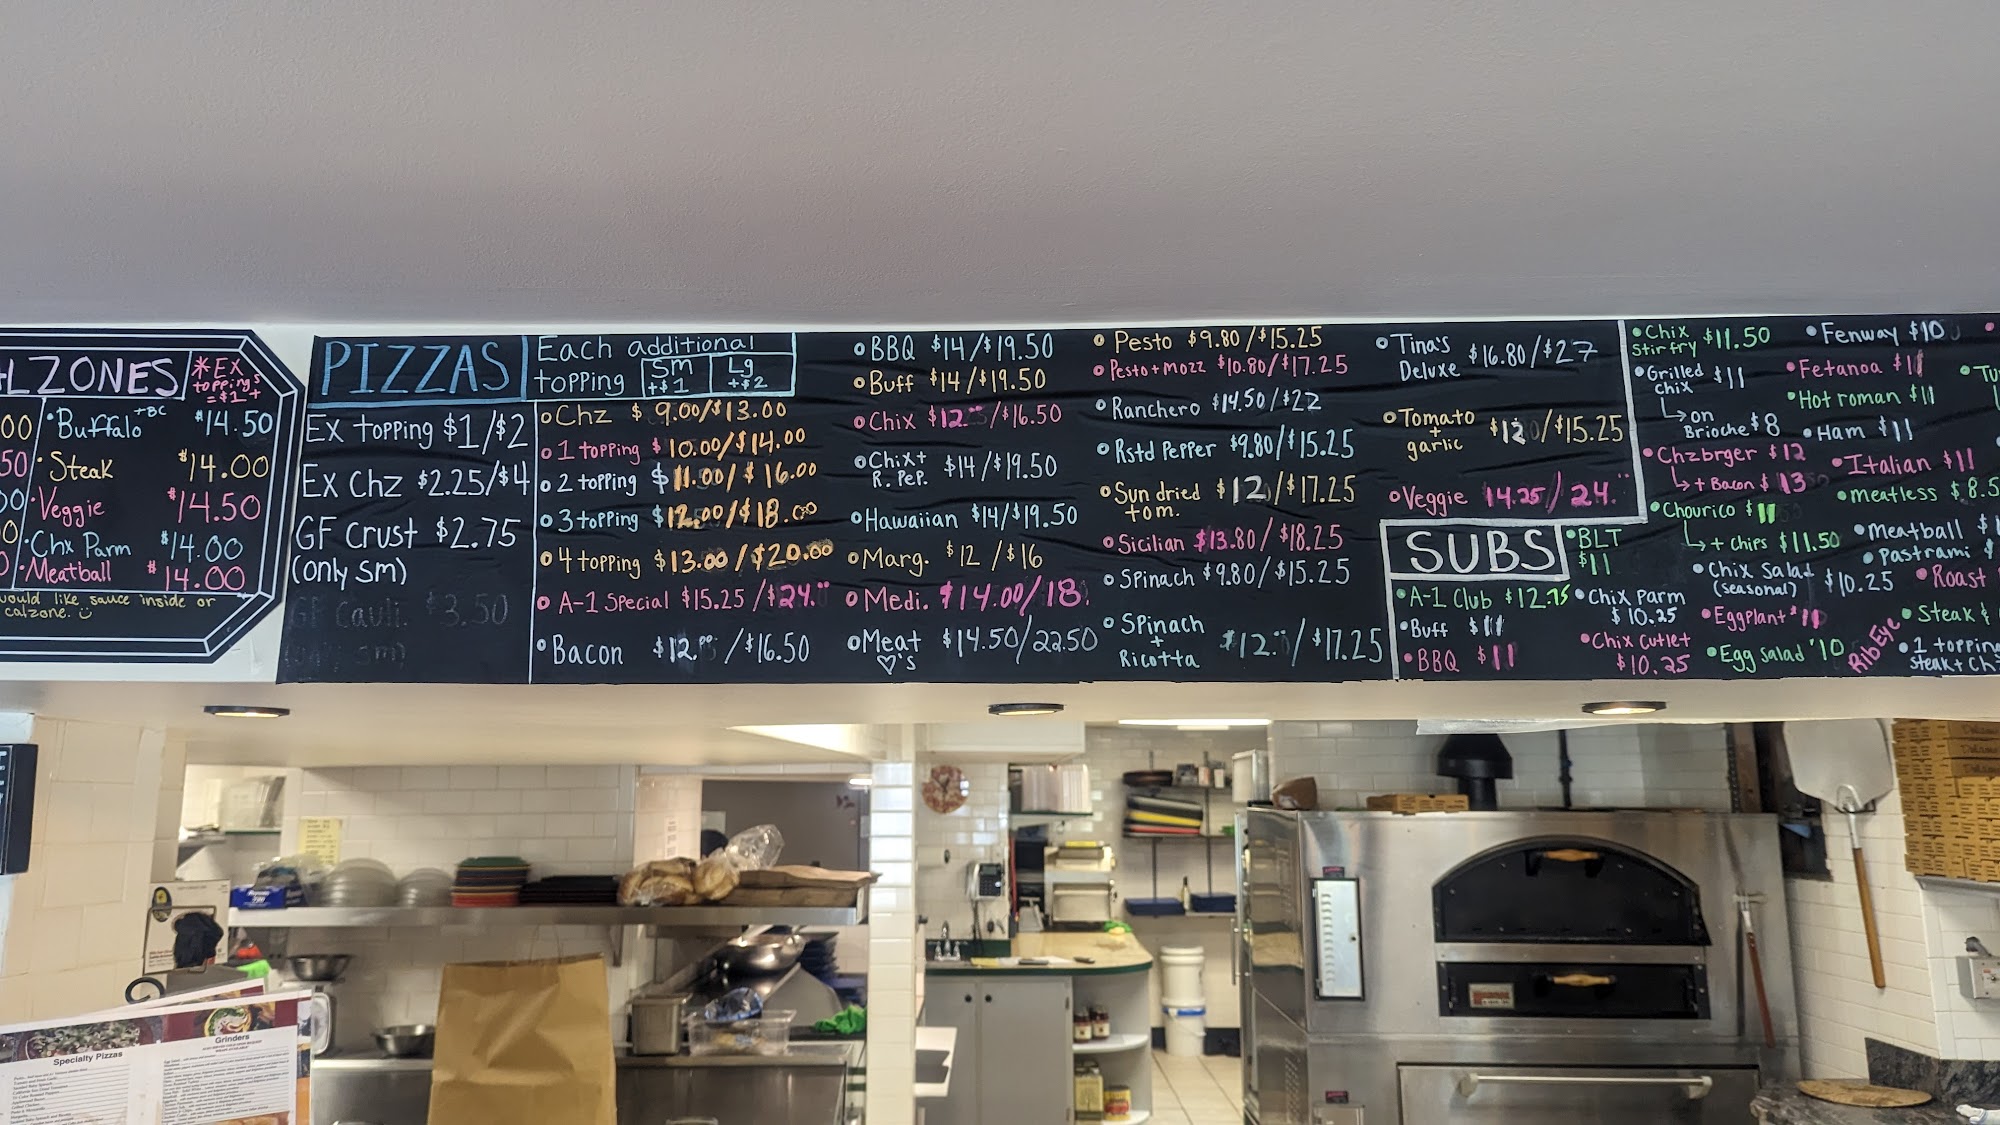 LZONES
*EX
toppings
=$1+
00
50
• Buffalo +BC $14.50
• Steak $14.00
• Veggie $14.50
• Chx Parm $14.00
• Meatball $14.00
would like sauce inside or
calzone. ☺
PIZZAS
Ex topping $1/$2
Ex Chz $2.25/$4
GF Crust $2.75
(only Sm)
GF Cauli. $3.50
(only sm)
Each additional
topping
Sm
+$1
Lg
+$2
Chz $9.00/$13.00
1 topping $10.00/$14.00
2 topping $11.00/$16.00
3 topping $12.00/$18.00
4 topping $13.00/$20.00
A-1 Special $15.25/$24.
Bacon $12.00/$16.50
BBQ $14/$19.50
Buff $14/$19.50
Chix $12.00/$16.50
Chix+
R. Pep. $14/$19.50
Hawaiian $14/$19.50
Marg. $12/$16
Medi. $14.00/18.
Meat
♡'s $14.50/22.50
Pesto $9.80/$15.25
Pesto+Mozz $10.80/$17.25
Ranchero $14.50/$22
Rstd Pepper $9.80/$15.25
Sun dried
tom. $12/$17.25
Sicilian $13.80/$18.25
Spinach $9.80/$15.25
Spinach
+
Ricotta $12.00/$17.25
Tina's
Deluxe $16.80/$27
Tomato
+
garlic $12/$15.25
Veggie 14.25/24.
SUBS
• A-1 Club $12.75
• Buff $11
• BBQ $11
• BLT
$11
• Chix Parm
$10.25
• Chix Cutlet
$10.25
• Chix
Stir fry $11.50
• Grilled
Chix $11
↳ on
Brioche $8
• Chzbrger $12
↳ + Bacon $13
• Chourico $11
↳ + chips $11.50
• Chix Salad
(seasonal) $10.25
• Eggplant $11
• Egg Salad $10
• Fenway $10
• Fetanoa $11
• Hot roman $11
• Ham $11
• Italian $11
• Meatless $8.5
• Meatball $
• Pastrami $
• Roast
• Steak &
RibEye
• 1 topping
steak + Ch
• Tu
Specialty Pizzas
Grinders